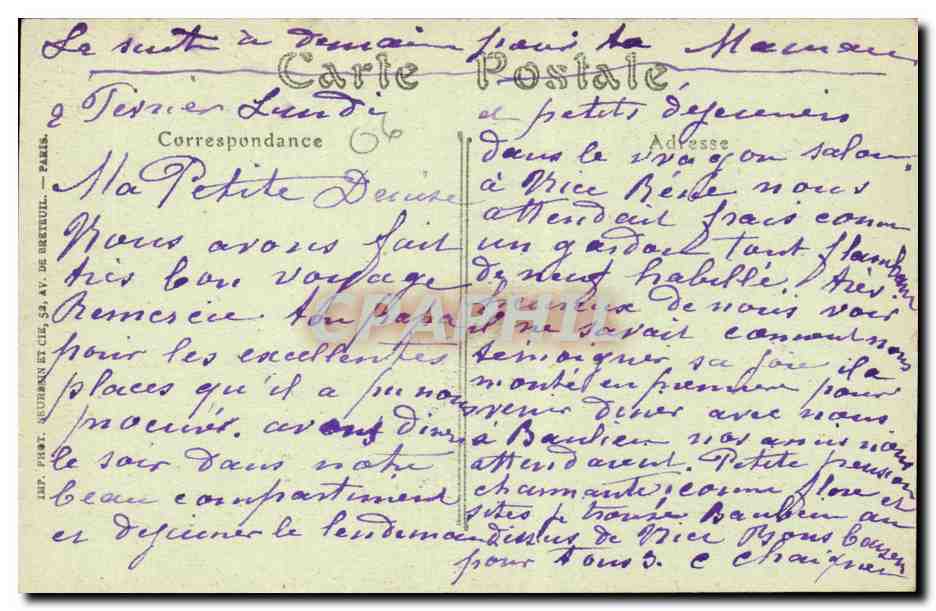 La suite à demain pour ta Maman
Carte Postale
2 Fevrier Lundi
Correspondance
Adresse
Ma Petite Denise
Nous avons fait
très bon voyage
Remercie ton Papa
pour les excellentes
places qu'il a pu nous
procurer. avons diner
le soir dans notre
beau compartiment
et dejeuner le lendemain
et petits déjeuners
dans le wagon salon.
à Nice Réné nous
attendait frais comme
un gardon tout flambant
de neuf habillé. très
heureux de nous voir
il ne savait comment nous
témoigner sa joie il a
monté en premiere pour
venir diner avec nous
à Baulieu nos amis nous
attendaient. Petite pension
charmante comme flore et
sites je trouve Baulieu au
dessus de Nice Bons baisers
pour tous 3. C Chaigner
IMP. PHOT. NEURDEIN ET CIE, 52, AV. DE BRETEUIL. — PARIS.
CPAPHIL